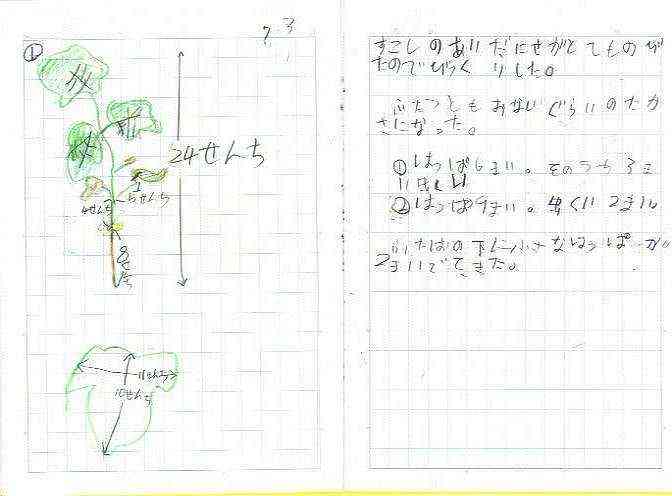 7 3
①
24せんち
4せんち
5せんち
8せんち
11せんち
10せんち
すこしのあいだにせがとてものび
たのでびっくりした。
ふたつともおないぐらいのたか
さになった。
①はっぱ まい。そのうち
②はっぱ9まい。 2まい
ふたばの下に小さなはっぱが
2まいでてきた。